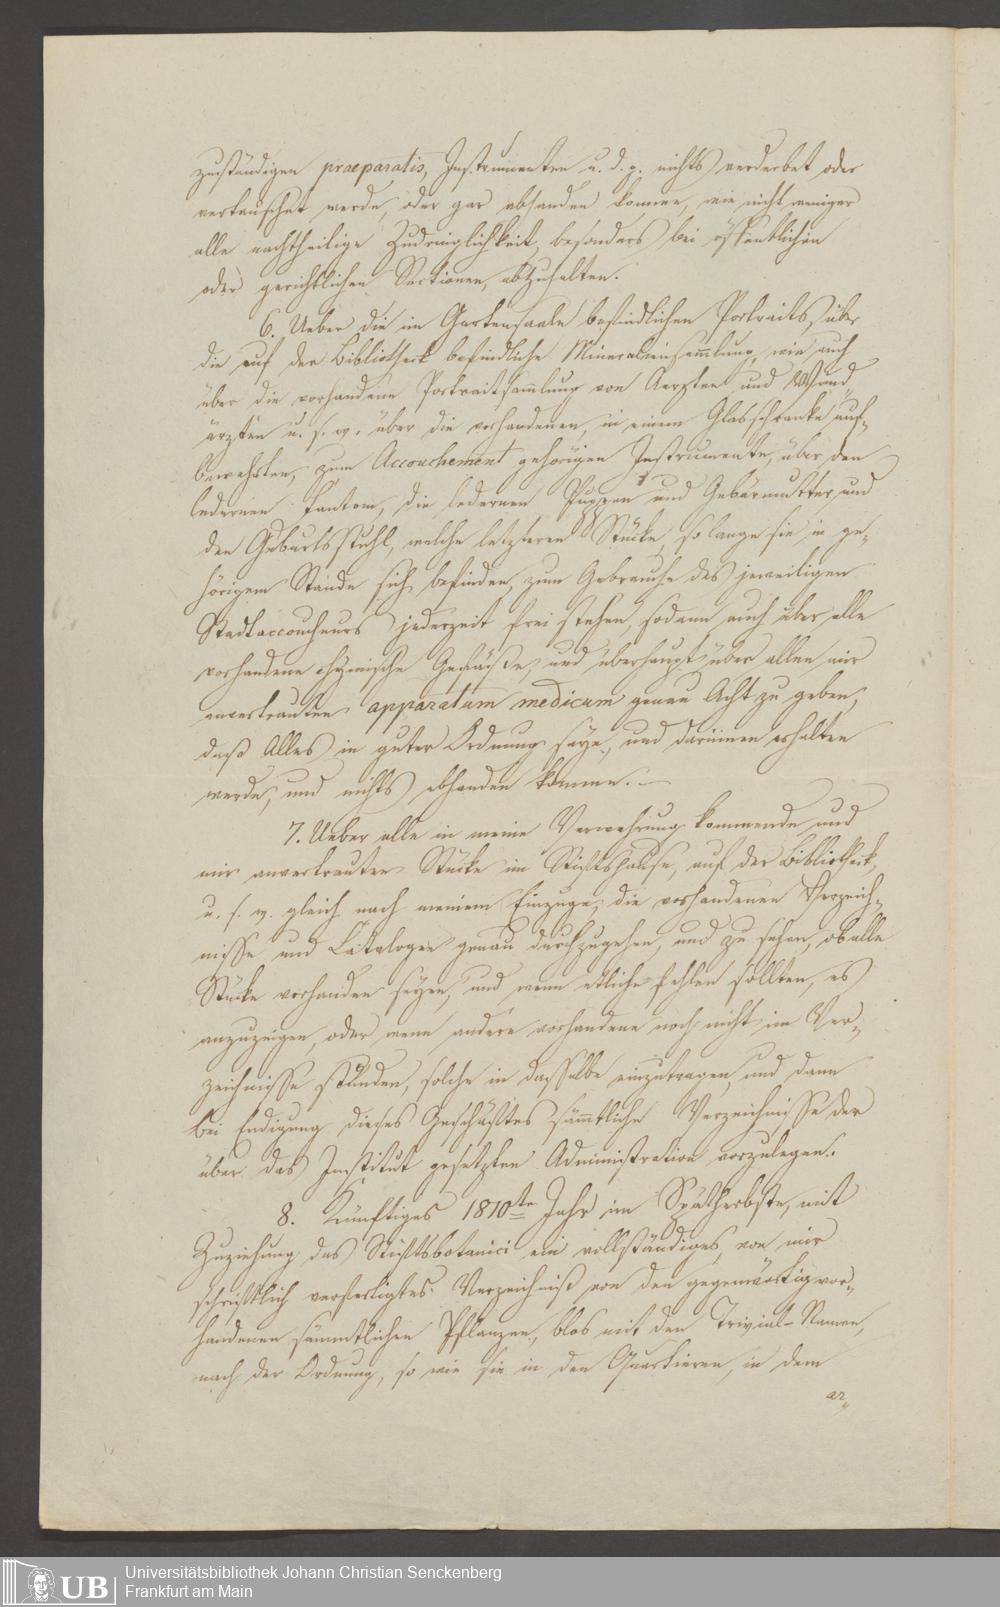 zuständigen praeparatis, Instrumenten u. d. g. nichts verderbet oder
vertauschet werde, oder gar abhanden komme, wie nicht weniger
alle nachtheilige Zudringlichkeit, besonders bei öffentlichen
oder gerichtlichen Sectionen, abzuhalten.
6. Ueber die im Gartensaale befindlichen Portraits, über
die auf der Bibliotheck befindliche Mineraliensammlung, wie auch
über die vorhandene Portraitsammlung von Aerzten und Wund„
ärzten u. s. w. über die vorhandenen, in einem Glasschranke auf„
bewahrten, zum Accouchement gehörigen Instrumente, über den
ledernen Fantom, die ledernen Puppen und Gebärmutter, und
den Geburtsstuhl, welche letzteren Stücke, so lange sie in ge„
hörigem Stande sich befinden, zum Gebrauche des jeweiligen
Stadtaccoucheurs jederzeit frei stehen, sodann auch über alle
vorhandene chymische Gefäße, und überhaupt über allen mir
anvertrauten apparatum medicum genau Acht zu geben,
daß Alles in guter Ordnung seye, und darinnen erhalten
werde, und nichts abhanden komme. —
7. Ueber alle in meine Verwahrung kommende und
mir anvertrauten Stücke im Stiftshause, auf der Bibliotheck,
u. s. w. gleich nach meinem Einzuge, die vorhandenen Verzeich„
nisse und Catalogen genau durchzugehen, und zu sehen, ob alle
Stücke vorhanden seyen, und wenn etliche fehlen sollten, es
anzuzeigen, oder wenn andere vorhandene noch nicht im Ver„
zeichnisse stünden, solche in dasselbe einzutragen, und dann
bei Endigung dieses Geschäftes sämtliche Verzeichnisse der
über das Institut gesetzten Administration vorzulegen.
8. Künftiges 1810te Jahr im Spätherbste, mit
Zuziehung des Stiftsbotanici ein vollständiges, von mir
schriftlich verfertigtes Verzeichniß von den gegenwärtig vor„
handenen sämmtlichen Pflanzen, blos mit den Trivial-Namen,
nach der Ordnung, so wie sie in den Quartieren, in dem
ar„
UB
Universitätsbibliothek Johann Christian Senckenberg
Frankfurt am Main